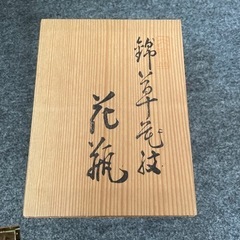 錦草花紋
花瓶